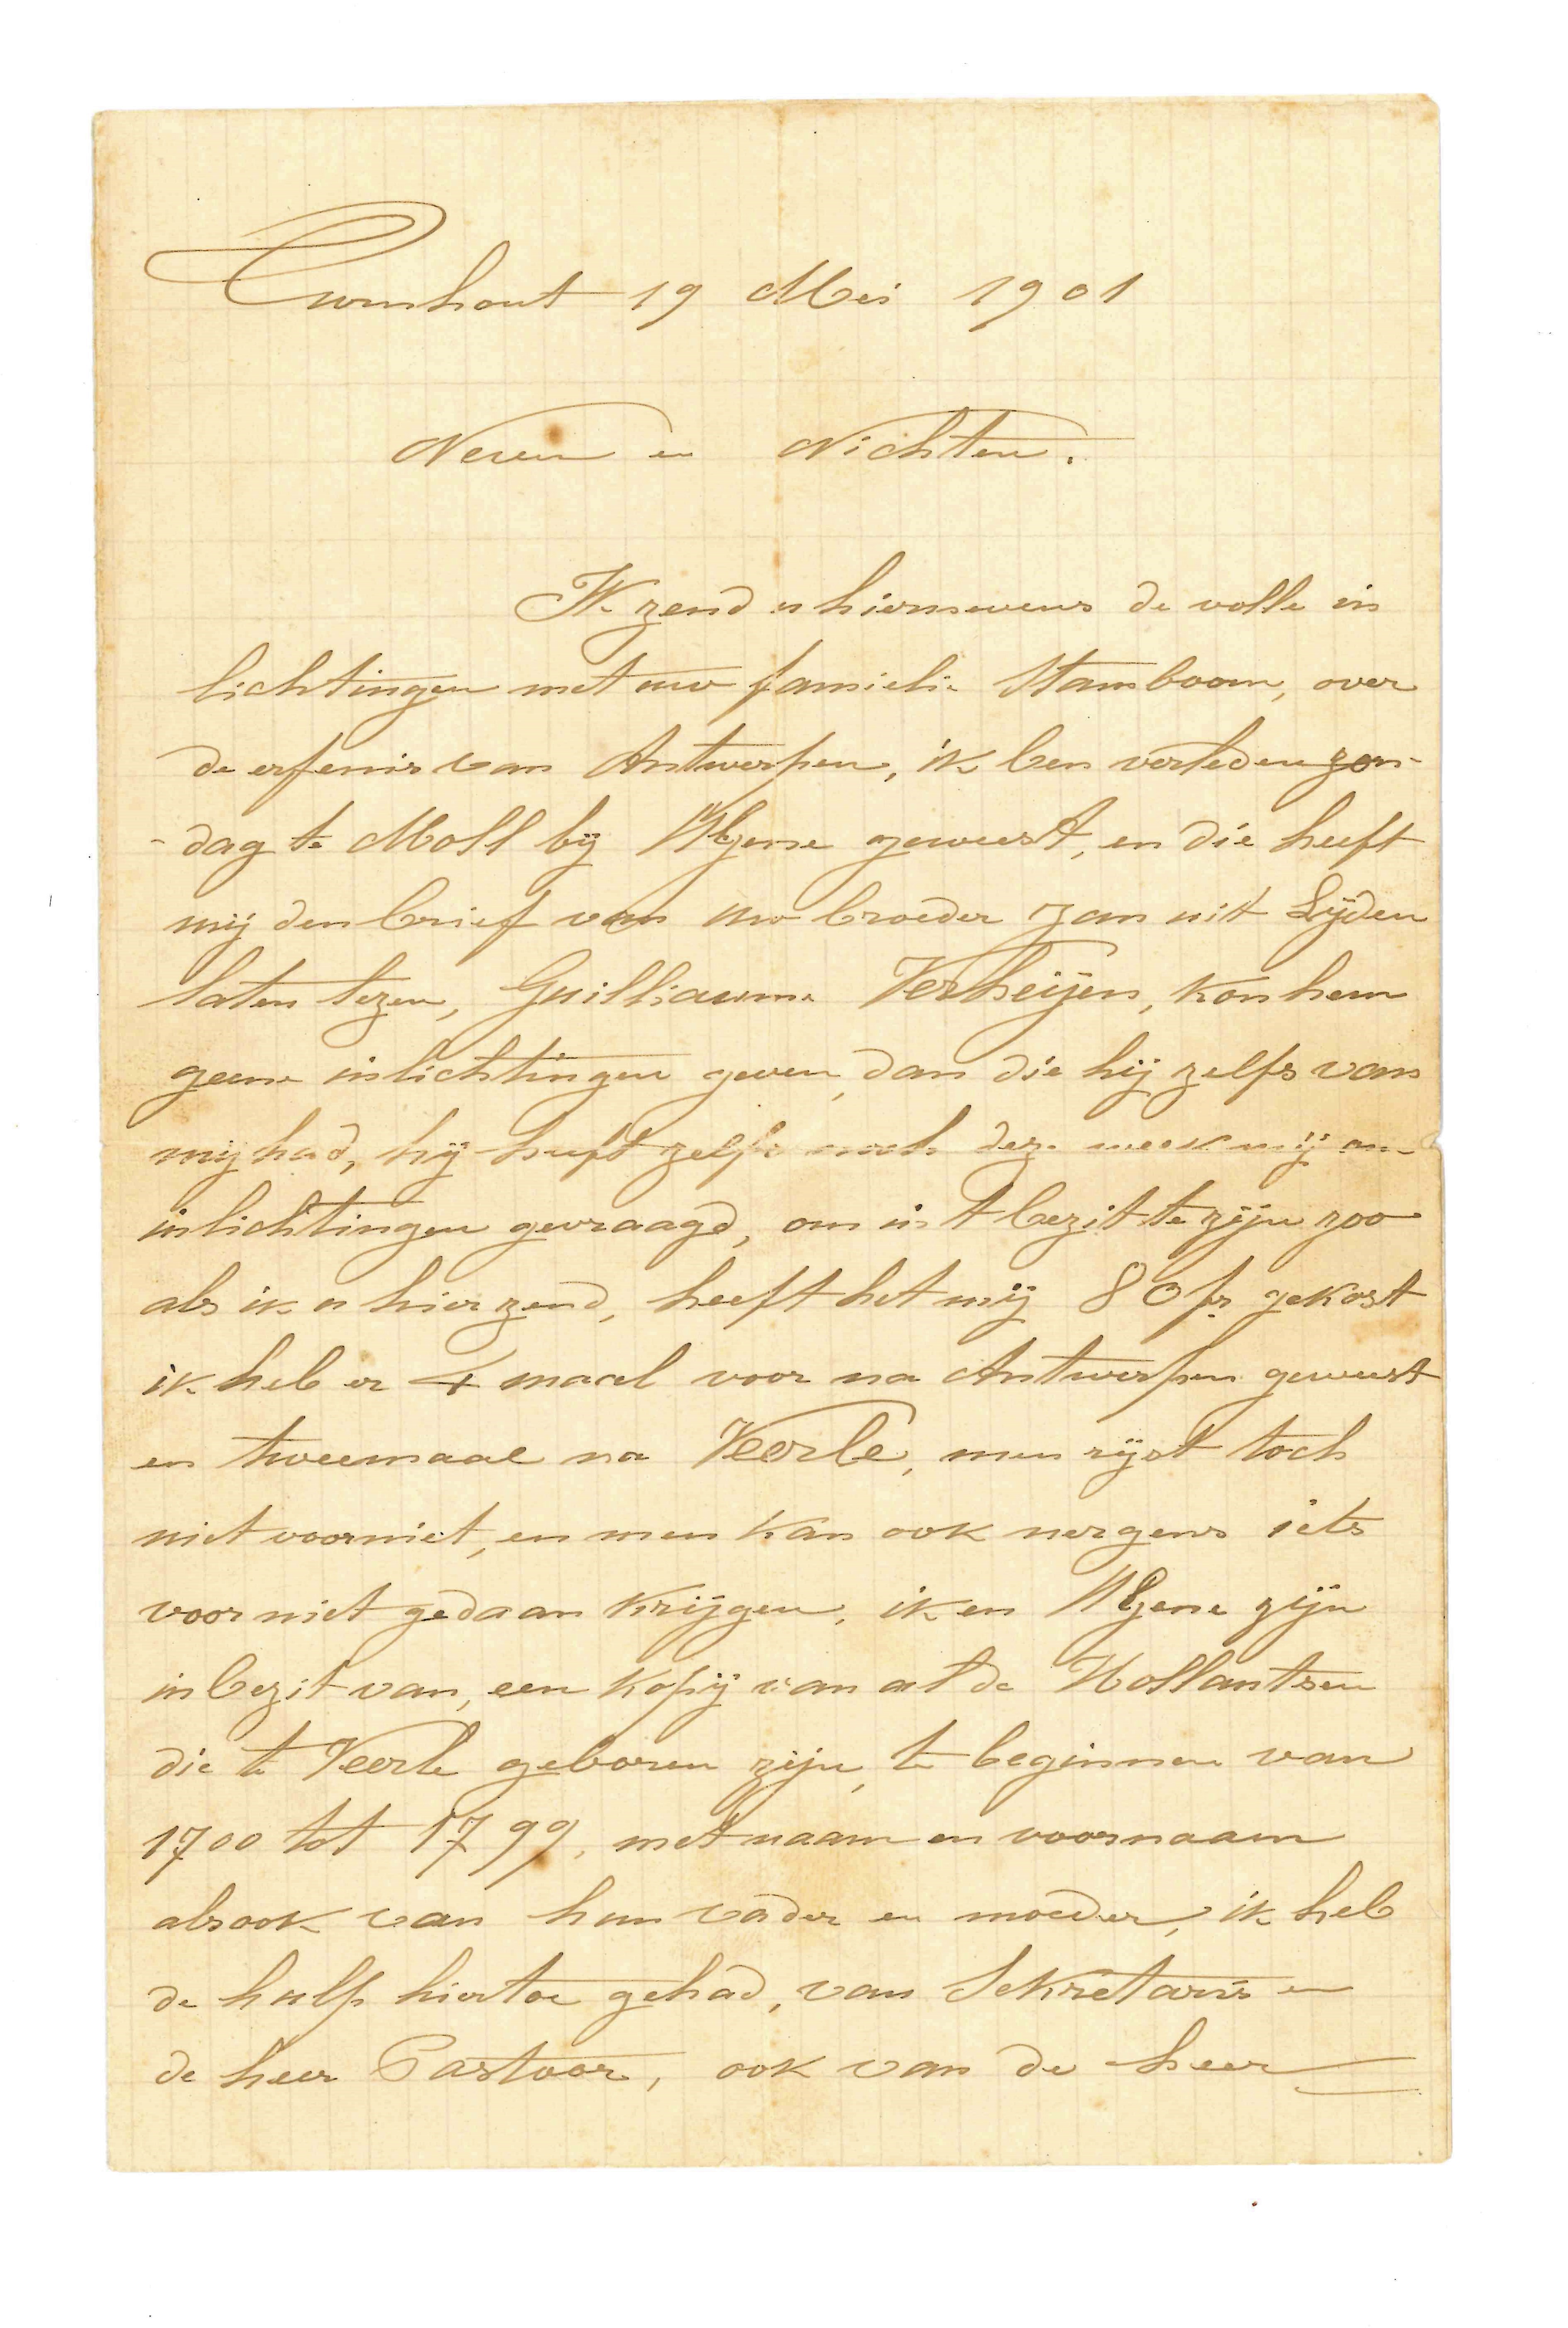 Turnhout 19 Mei 1901
Neven en Nichten.
Ik zend u hiernevens de volle in
lichtingen met uw familie Stamboom, over
de erfenis van Antwerpen, ik ben verleden zon-
-dag te Moll bij geweest, en die heeft
mij den brief van uw broeder Jan uit Lijden
laten lezen, Guilliaume Verheijen, kon hem
geene inlichtingen geven, dan die hij zelfs van
mij had, hij heeft zelfs noch deze week mij om
inlichtingen gevraagd, om in 't bezit te zijn zoo
als ik u hier zend, heeft het mij 80 fr gekost
ik heb er 4 maal voor na Antwerpen geweest
en tweemaal na Veerle, men rijst toch
niet voor niet, en men kan ook nergens iets
voor niet gedaan krijgen, ik en zijn
in bezit van, een kopij van al de Hollantsen
die te Veerle geboren zijn, te beginnen van
1700 tot 1799, met naam en voornaam
alsook van hun vader en moeder, ik heb
de hulp hiertoe gehad, van Sekretaris en
de heer Pastoor, ook van de heer